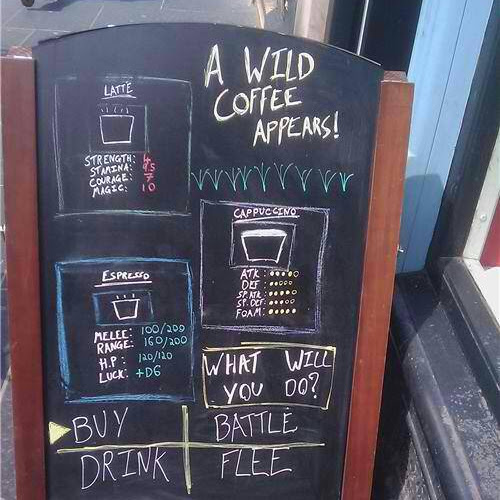 A WILD
COFFEE
APPEARS!
LATTÉ
STRENGTH: 4
STAMINA: 95
COURAGE: 7
MAGIC: 10
CAPPUCCINO
ATK:
DEF:
SP.ATK:
SP.DEF:
FOAM:
ESPRESSO
MELEE: 100/200
RANGE: 160/200
H.P: 120/120
LUCK: +D6
WHAT WILL
YOU DO?
BUY BATTLE
DRINK FLEE